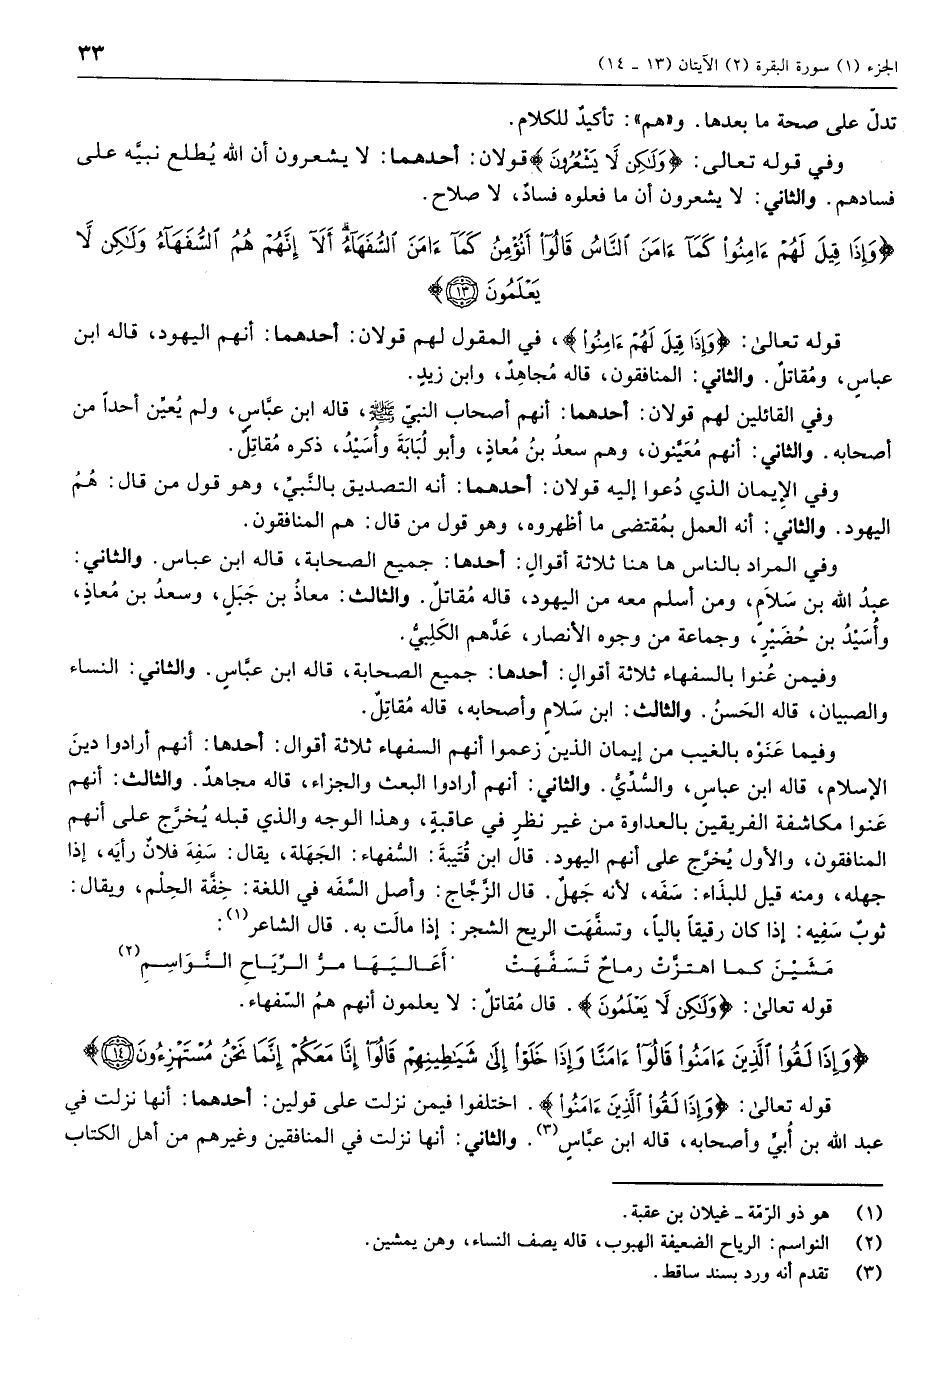 الجزء (١) سورة البقرة (٢) الآيتان (١٣ - ١٤)
٣٣
تدلّ على صحة ما بعدها. و«هم»: تأكيدٌ للكلام.
وفي قوله تعالى: ﴿وَلَٰكِن لَّا يَشْعُرُونَ﴾ قولان: أحدهما: لا يشعرون أن الله يُطلع نبيَّه على
فسادهم. والثاني: لا يشعرون أن ما فعلوه فسادٌ، لا صلاح.
﴿وَإِذَا قِيلَ لَهُمْ ءَامِنُوا۟ كَمَآ ءَامَنَ ٱلنَّاسُ قَالُوٓا۟ أَنُؤْمِنُ كَمَآ ءَامَنَ ٱلسُّفَهَآءُ ۗ أَلَآ إِنَّهُمْ هُمُ ٱلسُّفَهَآءُ وَلَٰكِن لَّا
يَعْلَمُونَ ﴿١٣﴾﴾
قوله تعالىٰ: ﴿وَإِذَا قِيلَ لَهُمْ ءَامِنُوا۟﴾، في المقول لهم قولان: أحدهما: أنهم اليهود، قاله ابن
عباسٍ، ومُقاتلٌ. والثاني: المنافقون، قاله مُجاهِدٌ، وابن زيدٍ.
وفي القائلين لهم قولان: أحدهما: أنهم أصحاب النبيّ ﷺ، قاله ابن عبَّاسٍ، ولم يُعيِّن أحداً من
أصحابه. والثاني: أنهم مُعَيَّنون، وهم سعدُ بنُ مُعاذٍ، وأبو لُبَابَةَ وأُسَيْدُ، ذكره مُقاتِلٌ.
وفي الإيمان الذي دُعوا إليه قولان: أحدهما: أنه التصديق بالنَّبيِّ، وهو قول من قال: هُمُ
اليهود. والثاني: أنه العمل بمُقتضى ما أظهروه، وهو قول من قال: هم المنافقون.
وفي المراد بالناس ها هنا ثلاثة أقوالٍ: أحدها: جميع الصحابة، قاله ابن عباس. والثاني:
عبدُ الله بن سَلَامٍ، ومن أسلم معه من اليهود، قاله مُقاتلٌ. والثالث: معاذُ بن جَبَلٍ، وسعدُ بن مُعاذٍ،
وأُسَيْدُ بن حُضَيْرٍ، وجماعة من وجوه الأنصار، عَدَّهم الكَلِبيُّ.
وفيمن عُنوا بالسفهاء ثلاثة أقوالٍ: أحدها: جميع الصحابة، قاله ابن عبَّاسٍ. والثاني: النساء
والصبيان، قاله الحَسنُ. والثالث: ابن سَلامٍ وأصحابه، قاله مُقاتِلٌ.
وفيما عَنَوْه بالغيب من إيمان الذين زعموا أنهم السفهاء ثلاثة أقوال: أحدها: أنهم أرادوا دينَ
الإسلام، قاله ابن عباسٍ، والسُّدِّيُّ. والثاني: أنهم أرادوا البعث والجزاء، قاله مجاهدٌ. والثالث: أنهم
عَنوا مكاشفة الفريقين بالعداوة من غير نظرٍ في عاقبةٍ، وهذا الوجه والذي قبله يُخرَّج على أنهم
المنافقون، والأول يُخرَّج على أنهم اليهود. قال ابن قُتَيبةَ: السُّفهاء: الجَهَلة، يقال: سَفِهَ فلانٌ رأيَه، إذا
جهله، ومنه قيل للبذَاء: سَفَه، لأنه جَهلٌ. قال الزَّجَّاج: وأصل السَّفَه في اللغة: خِفَّة الحِلْم، ويقال:
ثوبٌ سَفِيه: إذا كان رقيقاً بالياً، وتسفَّهَت الريح الشجر: إذا مالَت به. قال الشاعر(١):
مَشَيْنَ كما اهتزَّتْ رماحٌ تَسَفَّهَتْ أَعَاليَهَا مرُّ الرِّيَاحِ النَّوَاسِمِ(٢)
قوله تعالىٰ: ﴿وَلَٰكِن لَّا يَعْلَمُونَ﴾. قال مُقاتلٌ: لا يعلمون أنهم همُ السّفهاء.
﴿وَإِذَا لَقُوا۟ ٱلَّذِينَ ءَامَنُوا۟ قَالُوٓا۟ ءَامَنَّا وَإِذَا خَلَوْا۟ إِلَىٰ شَيَٰطِينِهِمْ قَالُوٓا۟ إِنَّا مَعَكُمْ إِنَّمَا نَحْنُ مُسْتَهْزِءُونَ ﴿١٤﴾﴾
قوله تعالىٰ: ﴿وَإِذَا لَقُوا۟ ٱلَّذِينَ ءَامَنُوا۟﴾. اختلفوا فيمن نزلت على قولين: أحدهما: أنها نزلت في
عبد الله بن أُبيٍّ وأصحابه، قاله ابن عبَّاسٍ(٣). والثاني: أنها نزلت في المنافقين وغيرهم من أهل الكتاب
(١) هو ذو الرّمّة ـ غيلان بن عقبة.
(٢) النواسم: الرياح الضعيفة الهبوب، قاله يصف النساء، وهن يمشين.
(٣) تقدم أنه ورد بسند ساقط.